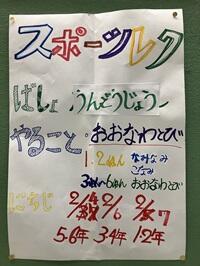 スポーツレク
ばしょ うんどうじょう
やること おおなわとび
1.2ねん なみなみ
3ねん~6ねん おおなわとび
にちじ 2/ 2/6 2/7
5.6年 3.4年 1.2年